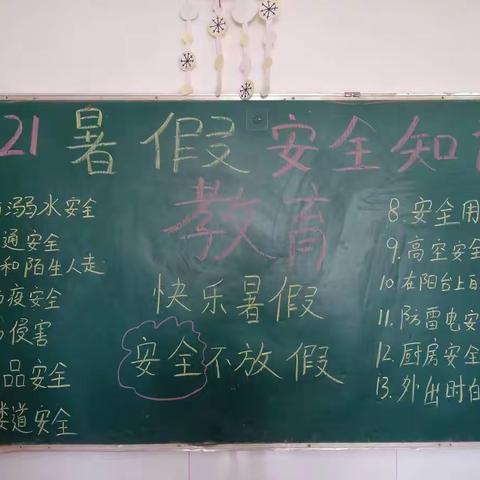 21暑假安全知
教育
快乐暑假
安全不放假
溺水安全
通安全
和陌生人走
疫安全
侵害
品安全
楼道安全
8.安全用
9.高空安全
10.在阳台上
11.防雷电安
12.厨房安全
13.外出时